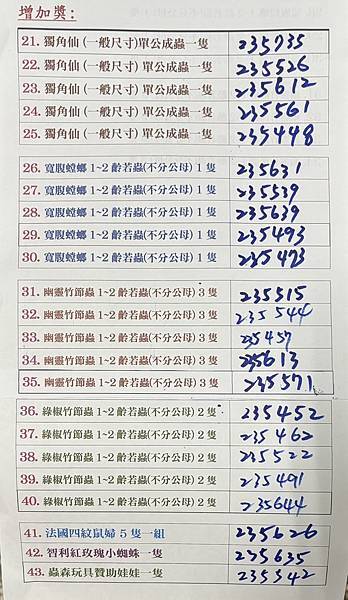 增加獎:
21. 獨角仙 (一般尺寸)單公成蟲一隻 235735
22. 獨角仙 (一般尺寸)單公成蟲一隻 235526
23. 獨角仙 (一般尺寸)單公成蟲一隻 235612
24. 獨角仙 (一般尺寸)單公成蟲一隻 235561
25. 獨角仙 (一般尺寸)單公成蟲一隻 235448
26. 寬腹螳螂 1~2 齡若蟲(不分公母) 1 隻 235631
27. 寬腹螳螂 1~2 齡若蟲(不分公母) 1 隻 235539
28. 寬腹螳螂 1~2 齡若蟲(不分公母) 1 隻 235639
29. 寬腹螳螂 1~2 齡若蟲(不分公母) 1 隻 235493
30. 寬腹螳螂 1~2 齡若蟲(不分公母) 1 隻 235473
31. 幽靈竹節蟲 1~2 齡若蟲(不分公母) 3 隻 235515
32. 幽靈竹節蟲 1~2 齡若蟲(不分公母) 3 隻 235544
33. 幽靈竹節蟲 1~2 齡若蟲(不分公母) 3 隻 235457
34. 幽靈竹節蟲 1~2 齡若蟲(不分公母) 3 隻 235613
35. 幽靈竹節蟲 1~2 齡若蟲(不分公母) 3 隻 235571
36. 綠椒竹節蟲 1~2 齡若蟲(不分公母) 2 隻 235452
37. 綠椒竹節蟲 1~2 齡若蟲(不分公母) 2 隻 235462
38. 綠椒竹節蟲 1~2 齡若蟲(不分公母) 2 隻 235522
39. 綠椒竹節蟲 1~2 齡若蟲(不分公母) 2 隻 235491
40. 綠椒竹節蟲 1~2 齡若蟲(不分公母) 2 隻 235644
41. 法國四紋鼠婦 5 隻一組 235626
42. 智利紅玫瑰小蜘蛛一隻 235635
43. 蟲森玩具贊助娃娃一隻 235542